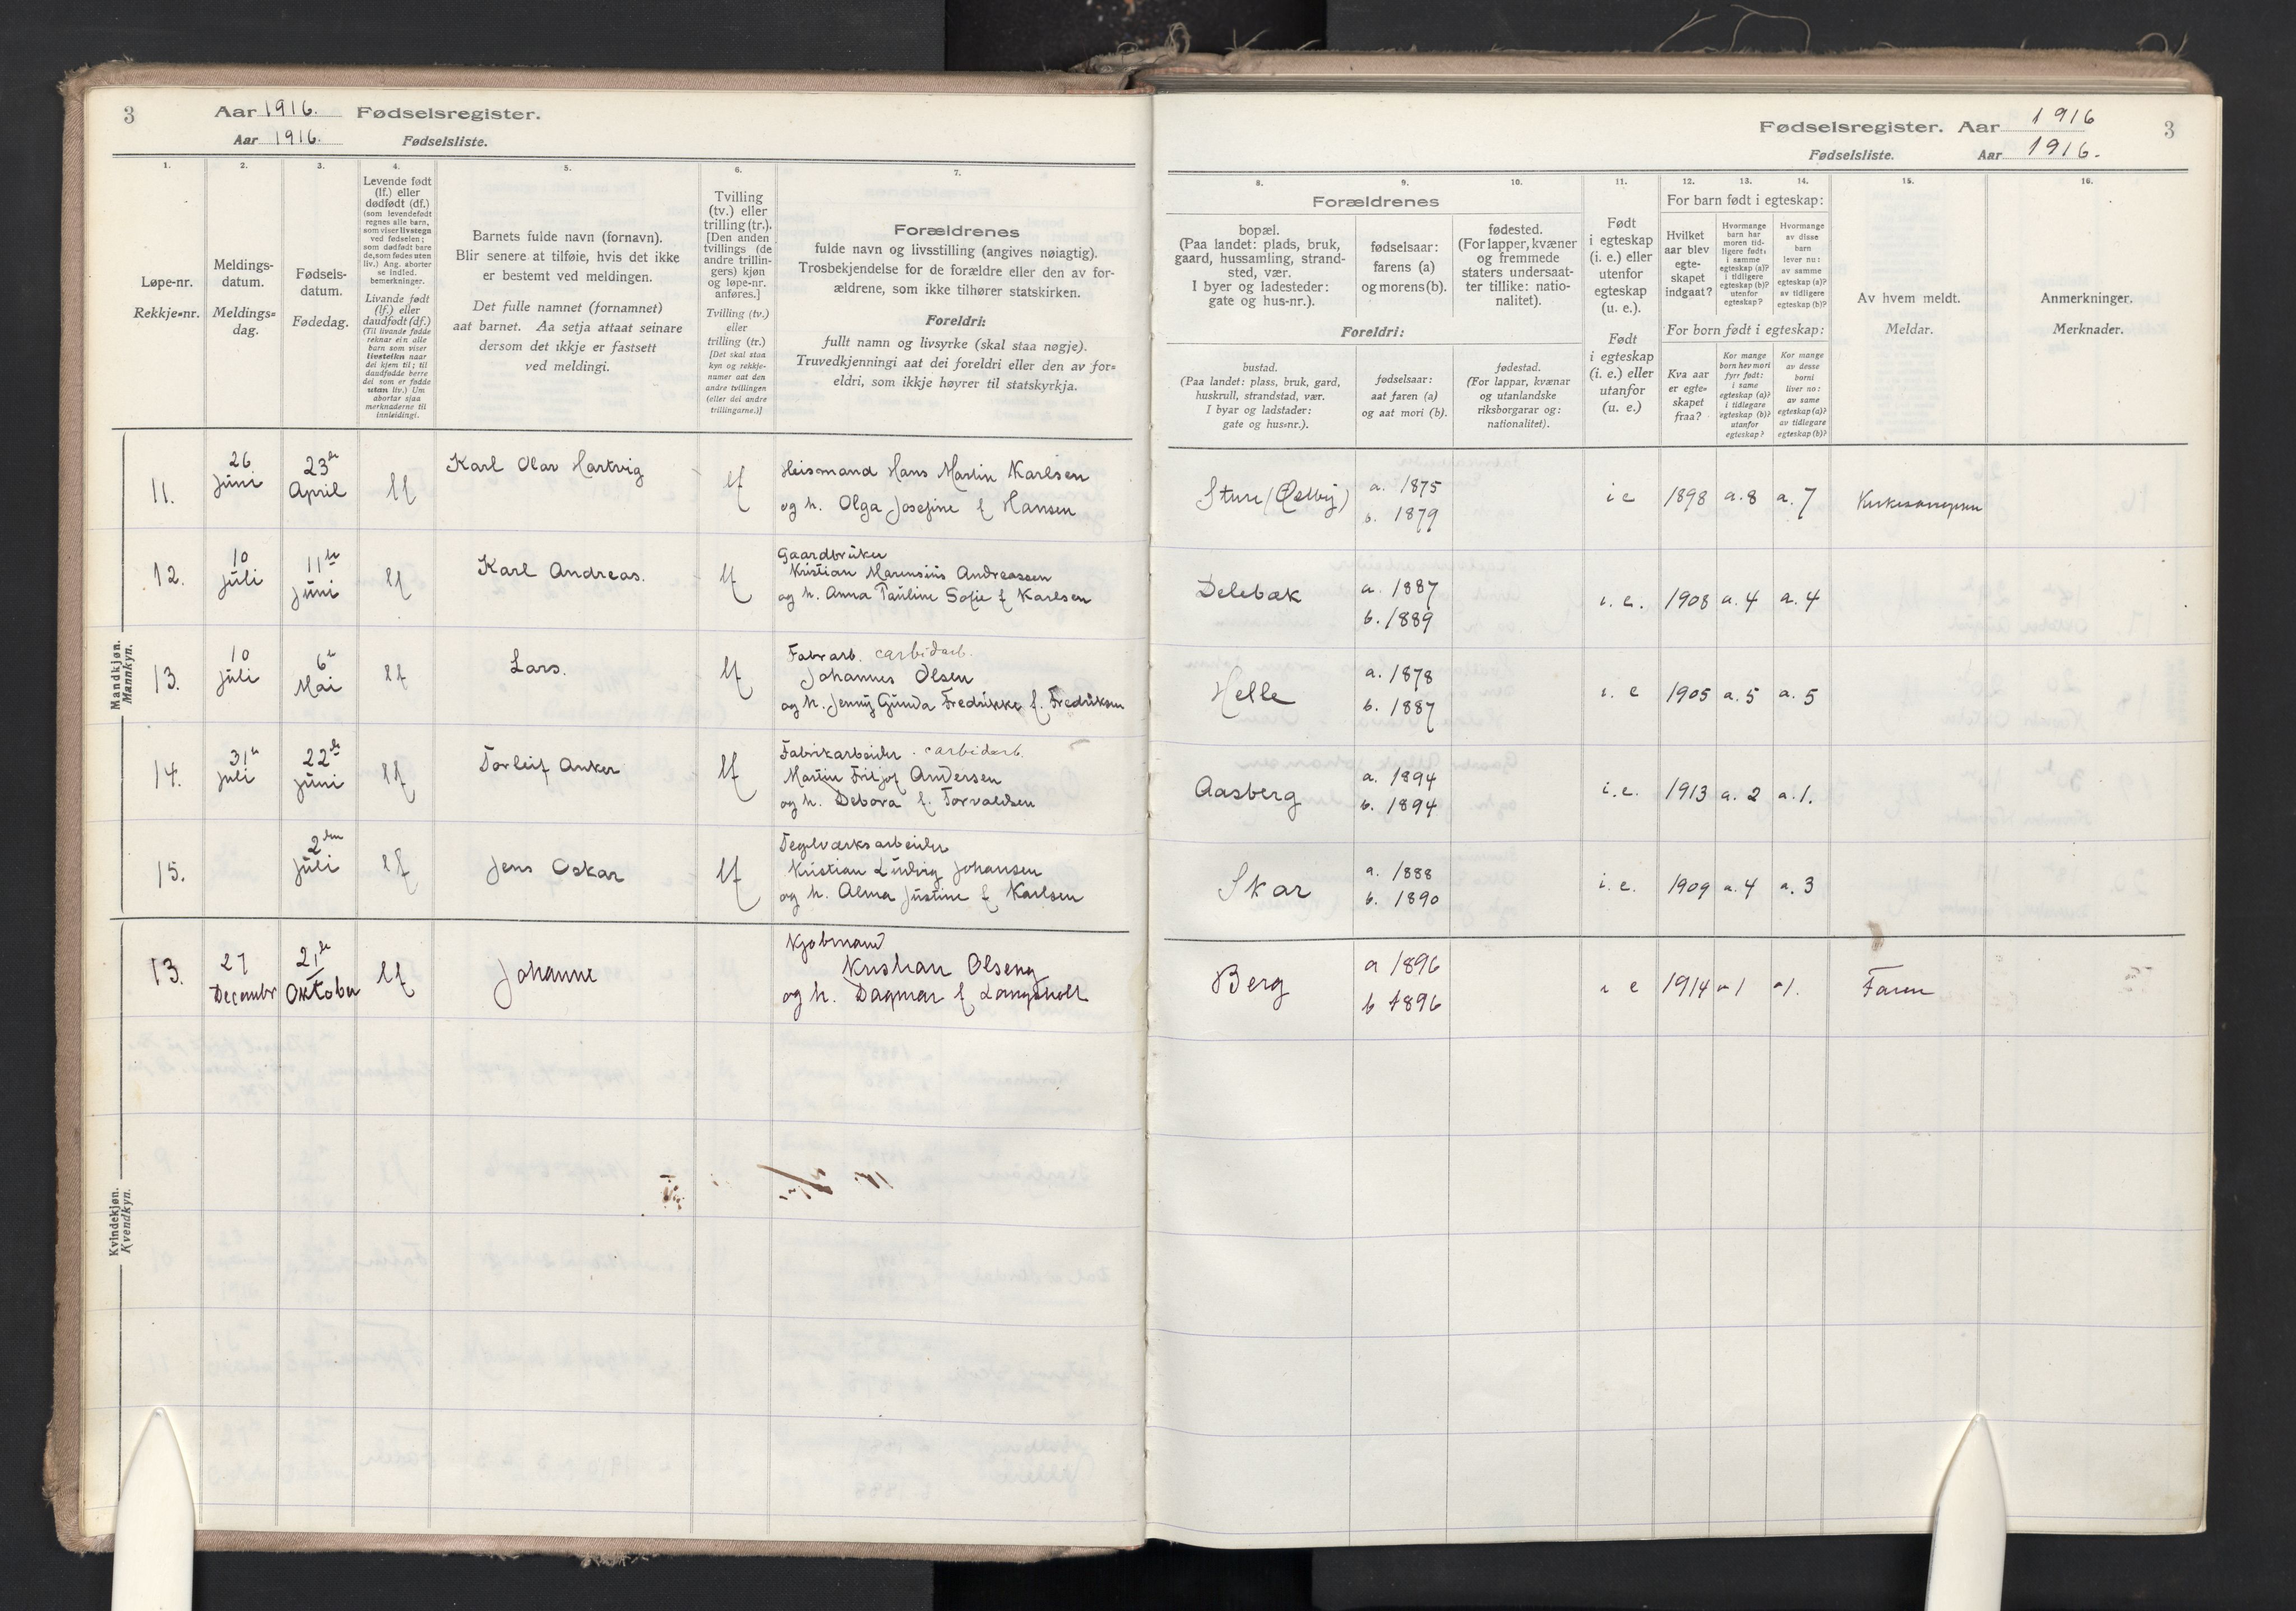 3 Aar 1916. Fødselsregister.
Aar 1916. Fødselsliste.
1. 2. 3. 4. 5. 6. 7.
Løpe-nr.
Rekkje-nr.
Meldings-
datum.
Meldings-
dag.
Fødsels-
datum.
Fødedag.
Levende født
(lf.) eller
dødfødt (df.)
(som levendefødt
regnes alle barn,
som viser livstegn
ved fødselen;
som dødfødt bare
de, som fødes uten
liv.) Ang. aborter
se indled.
bemerkninger.
Livande født
(lf.) eller
daudfødt (df.)
(Til livande fødde
reknar ein alle
barn som viser
livsteikn naar
dei kjem til; til
daudfødde berre
dei som er fødde
utan liv.) Um
abortar sjaa
merknaderne til
innleidingi.
Barnets fulde navn (fornavn).
Blir senere at tilføie, hvis det ikke
er bestemt ved meldingen.
Det fulle namnet (fornamnet)
aat barnet. Aa setja attaat seinare
dersom det ikkje er fastsett
ved meldingi.
Tvilling
(tv.) eller
trilling (tr.).
[Den anden
tvillings (de
andre trillin-
gers) kjøn
og løpe-nr.
anføres.]
Tvilling (tv.)
eller
trilling (tr.)
[Det skal staa
kyn og rekkje-
numer aat den
andre tvillingen
(eller dei andre
trillingarne.)]
Forældrenes
fulde navn og livsstilling (angives nøiagtig).
Trosbekjendelse for de forældre eller den av for-
ældrene, som ikke tilhører statskirken.
Foreldri:
fullt namn og livsyrke (skal staa nøgje).
Truvedkjenningi aat dei foreldri eller den av for-
eldri, som ikkje høyrer til statskyrkja.
Mandkjøn.
Mannkyn.
11. 26 Juni 23de April lf Karl Olav Hartvig lf
Heismand Hans Martin Karlsen
og h. Olga Josefine f Hansen
12. 10 Juli 11te Juni lf Karl Andreas. lf
Gaardbruker
Kristian Marensius Andreassen
og h. Anna Pauline Sofie f Karlsen
13. 10 Juli 6te Mai lf Lars. lf
Fabrarb. carbidarb.
Johannes Olsen
og h. Jenny Gunda Fredrikke f. Fredriksen
14. 31te Juli 22de Juni lf Torleif Anker lf
Fabrikarbeider. carbidarb.
Martin Fritjof Andersen
og h. Debora f. Torvaldsen
15. 2den Juli lf Jens Oskar lf
Teglværksarbeider
Kristian Ludvig Johansen
og h. Alma Justine f Karlsen
Kvindekjøn.
Kvendkyn.
13. 27 December 21de Oktober lf Johanne
Kjøbmand
Kristian Olseng
og h. Dagmar f Langsholt
Fødselsregister. Aar 1916 3
Fødselsliste. Aar 1916.
8. 9. 10. 11. 12. 13. 14. 15. 16.
Forældrenes
bopæl.
(Paa landet: plads, bruk,
gaard, hussamling, strand-
sted, vær.
I byer og ladesteder:
gate og hus-nr.).
fødselsaar:
farens (a)
og morens (b).
fødested.
(For lapper, kvæner
og fremmede
staters undersaat-
ter tillike: natio-
nalitet).
Foreldri:
bustad.
(Paa landet: plass, bruk, gard,
huskrull, strandstad, vær.
I byar og ladstader:
gate og hus-nr.).
fødselsaar:
aat faren (a)
og aat mori (b).
fødestad.
(For lappar, kvænar
og utanlandske
riksborgarar og:
nationalitet).
Født
i egteskap
(i. e.) eller
utenfor
egteskap
(u. e.).
Født
i egteskap
(i. e.) eller
utanfor
(u. e.)
For barn født i egteskap:
Hvilket
aar blev
egte-
skapet
indgaat?
Hvormange
barn har
moren tid-
ligere født:
i samme
egteskap (a)?
i tidligere
egteskap (b)?
utenfor
egteskap?
Hvormange
av disse
barn
lever nu:
av samme
egteskap (a)?
av tidligere
egteskap (b)?
For born født i egteskap:
Kva aar
er egte-
skapet
fraa?
Kor mange
born hev mori
fyrr født:
i same
egteskap (a)?
i tidlegare
egteskap (b)?
utanfor
egteskap?
Kor mange
av desse
borni
liver no:
av same
egteskap (a)?
av tidlegare
egteskap (b)?
Av hvem meldt.
Meldar.
Anmerkninger.
Merknader.
Sture (Østby) a. 1875 i e 1898 a. 8 a. 7 Kirkesangeren
b. 1879
Delebæk a. 1887 i. e. 1908 a. 4 a. 4
b. 1889
Helle a. 1878 i. e 1905 a. 5 a. 5
b. 1887
Aasberg a. 1894 i. e. 1913 a. 2 a. 1.
b. 1894
Skar a. 1888 i. e. 1909 a. 4 a. 3
b. 1890
Berg a 1896 i e 1914 a 1 a 1. Faren
b 1896